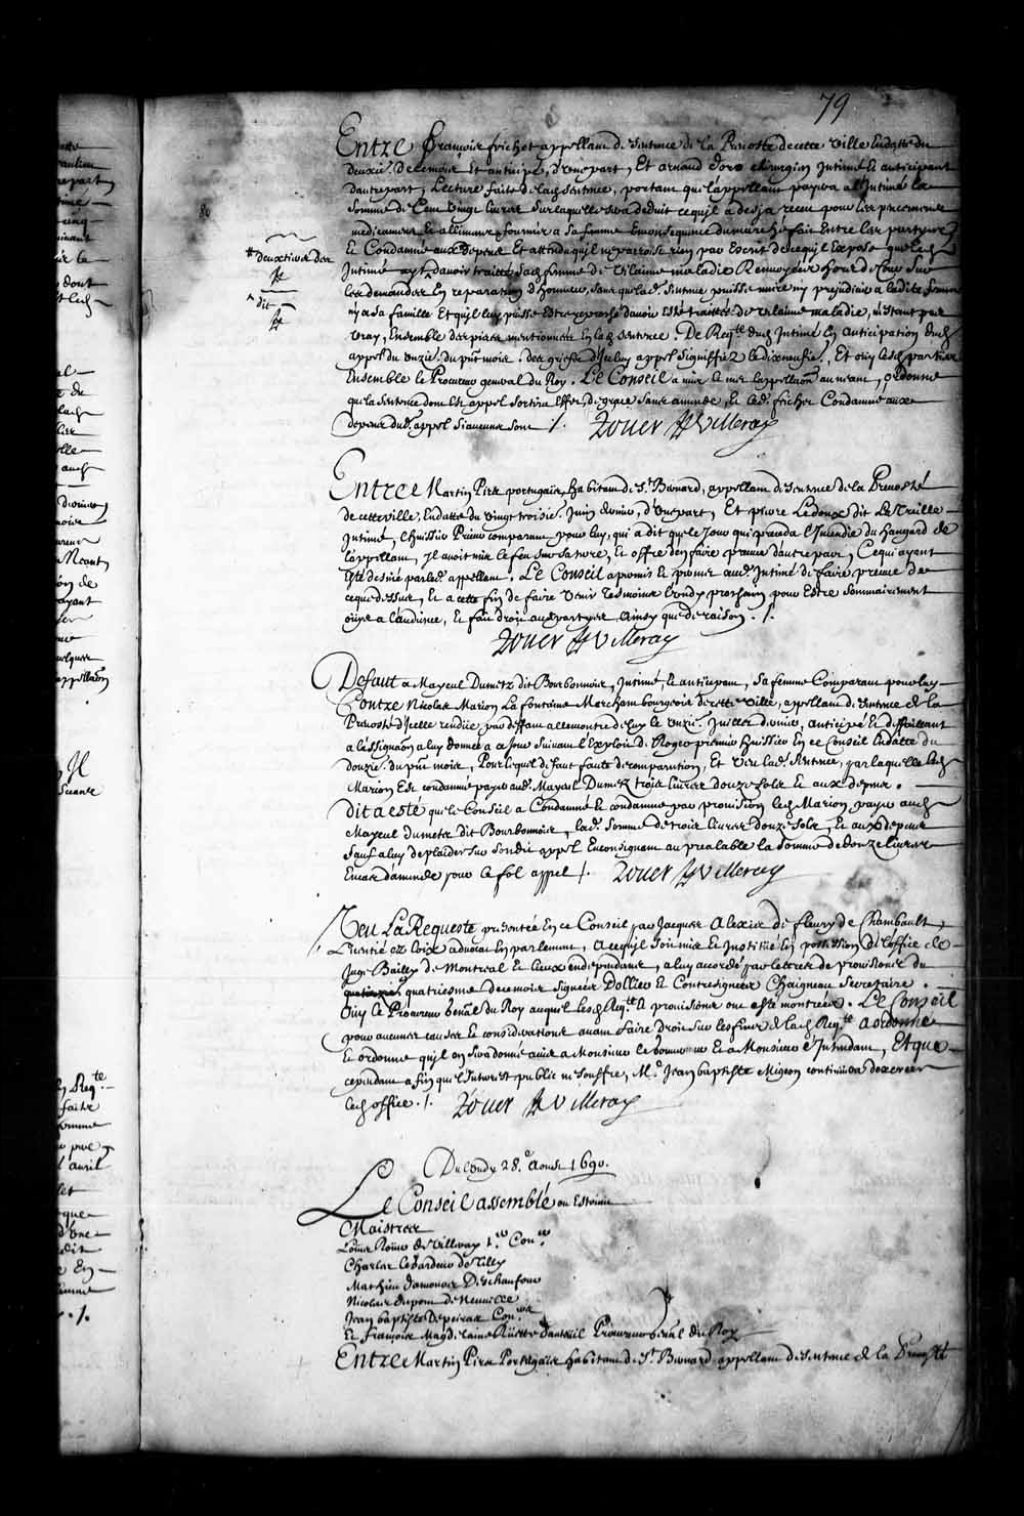 79
Entre françois frichet appellant de sentence de la Prevosté de cette ville En datte du
deuxie. decembre Et anticipé, d'une part, Et arnaud chirurgien Intimé et anticipant
d'autre part, Lecture faite de lad. sentence, portant que l'appellant payera a l'Intimé la
somme de Cent vingt livres sur laquelle sera deduit ce qu'il a desja receu pour les pansemens
medicamens Et alimens fournis a sa femme En consequence du marché fait Entre les partyes
Et Condamné aux depens Et attendu qu'il ne paroist rien par Escrit de ce qu'il Expose que led.
Intimé ayt d'avoir traitté sad. femme de vilaine maladie Renvoyé hors de Cour sur
les demandes En reparation d'honneur, sans que lad. sentence puisse nuire ny prejudicier a ladite femme
ny a sa famille Et qu'il luy puisse Estre reproché d'avoir Esté traittée de vilaine maladie, n'estant pas
vray, Ensemble des pieces mentionnées En lad. sentence. De Reqte. dud. Intimé En anticipation dud.
appel du unzie. du pnt. mois, des griefs d'iceluy appel signiffiez le dixneufie. Et ouy lesd. partyes
Ensemble le Procureur general du Roy. Le Conseil a mis Et met l'appellaon. au neant, ordonne
que la sentence dont Est appel sortira Effet, de grace sans amende, Et led. frichet Condamné aux
depens dud. appel si aucuns sont /. Roüer de Villeray
* deux tiers des
^ dit
Entre Martin Pire portugais, habitant de St. Bernard, appellant de sentence de la Prevosté
de cette ville, En datte du vingt troisie. Juin dernier, d'une part, Et pierre Ledoux dit La Treille
Intimé, l'huissier Prieur comparant pour luy, qui a dit que le Jour qui preceda l'Incendie du hangard de
l'appellant, Il avoit mis le feu sur sa terre, Et offre d'en faire preuve d'autre part, Ce qui ayant
Esté desnié par led. appellant. Le Conseil a permis Et permet aud. Intimé de faire preuve de
ce que dessus, Et a cette fin de faire venir tesmoins Lundy prochain pour Estre sommairement
ouys a l'audience, Et fait droit aux partyes Ainsy que de raison. /.
Roüer de Villeray
Defaut a Mayeul Dumetz dit Bourbonnois, Intimé, et anticipant, sa femme Comparant pour luy
Contre Nicolas Marion La fontaine Marchand bourgeois de cette Ville, appellant de sentence de la
Prevosté d'icelle rendüe par deffaut allencontre de luy le unzie. Juillet dernier, anticipé Et deffaillant
a l'assignaon a luy donnée a ce Jour suivant l'Exploit de Roger premier huissier En ce Conseil En datte du
douzie. du pnt. mois, Pour lequel defaut faute de comparution, Et veu lad. sentence, par laquelle led.
Marion Est condamné payer aud. Mayeul Dumetz trois livres douze sols Et aux depens.
dit a esté que le Conseil a Condamné Et condamne par provision led. Marion payer aud.
Mayeul Dumetz dit Bourbonnois, lad. somme de trois livres douze sols, Et aux depens
sauf a luy de plaider sur sondit appel En consignant au prealable la somme de douze livres
En cas d'amende pour le fol appel /. Roüer de Villeray
Veu La Requeste presentée En ce Conseil par Jacques Alexis de fleury de Chambault,
Licentié ez loix advocat En parlement, a ce qu'il soit mis Et Institué En possession de l'office de
Juge Bailly de Montreal Et lieux en dependans, a luy accordé par lettres de provisions du
quatriesme decembre signées Dollier Et Contresignées Chaigneau Secretaire.
Ouy Le Procureur Genal. du Roy auquel lesd. Reqte. Et provisions ont esté montrées. Le Conseil
pour aucunes causes Et considerations avant faire droit sur les fins de lad. Reqte. a ordonné
Et ordonne qu'il en sera donné avis a Monsieur le Gouverneur Et a Monsieur l'Intendant, Et que
cependant a fin que l'Interest public ne souffre, Me. Jean baptiste Migeon continuera d'exercer
led. office. /. Roüer de Villeray
Du Lundy 28.e Aoust 1690.
Le Conseil assemblé ou Estoient
Maistres
Loüis Roüer de Villeray 1.er Con.er
Charles Lebardeur de Tilly
Mathieu Damours Deschaufour
Nicolas dupont de Neuville
Jean baptiste Depeiras Con.ers
Et françois Magdelaine Rüette d'auteuil Procureur Genal. du Roy
Entre Martin Pire Portugais habitant de St. Bernard appellant de sentence de la Prevosté